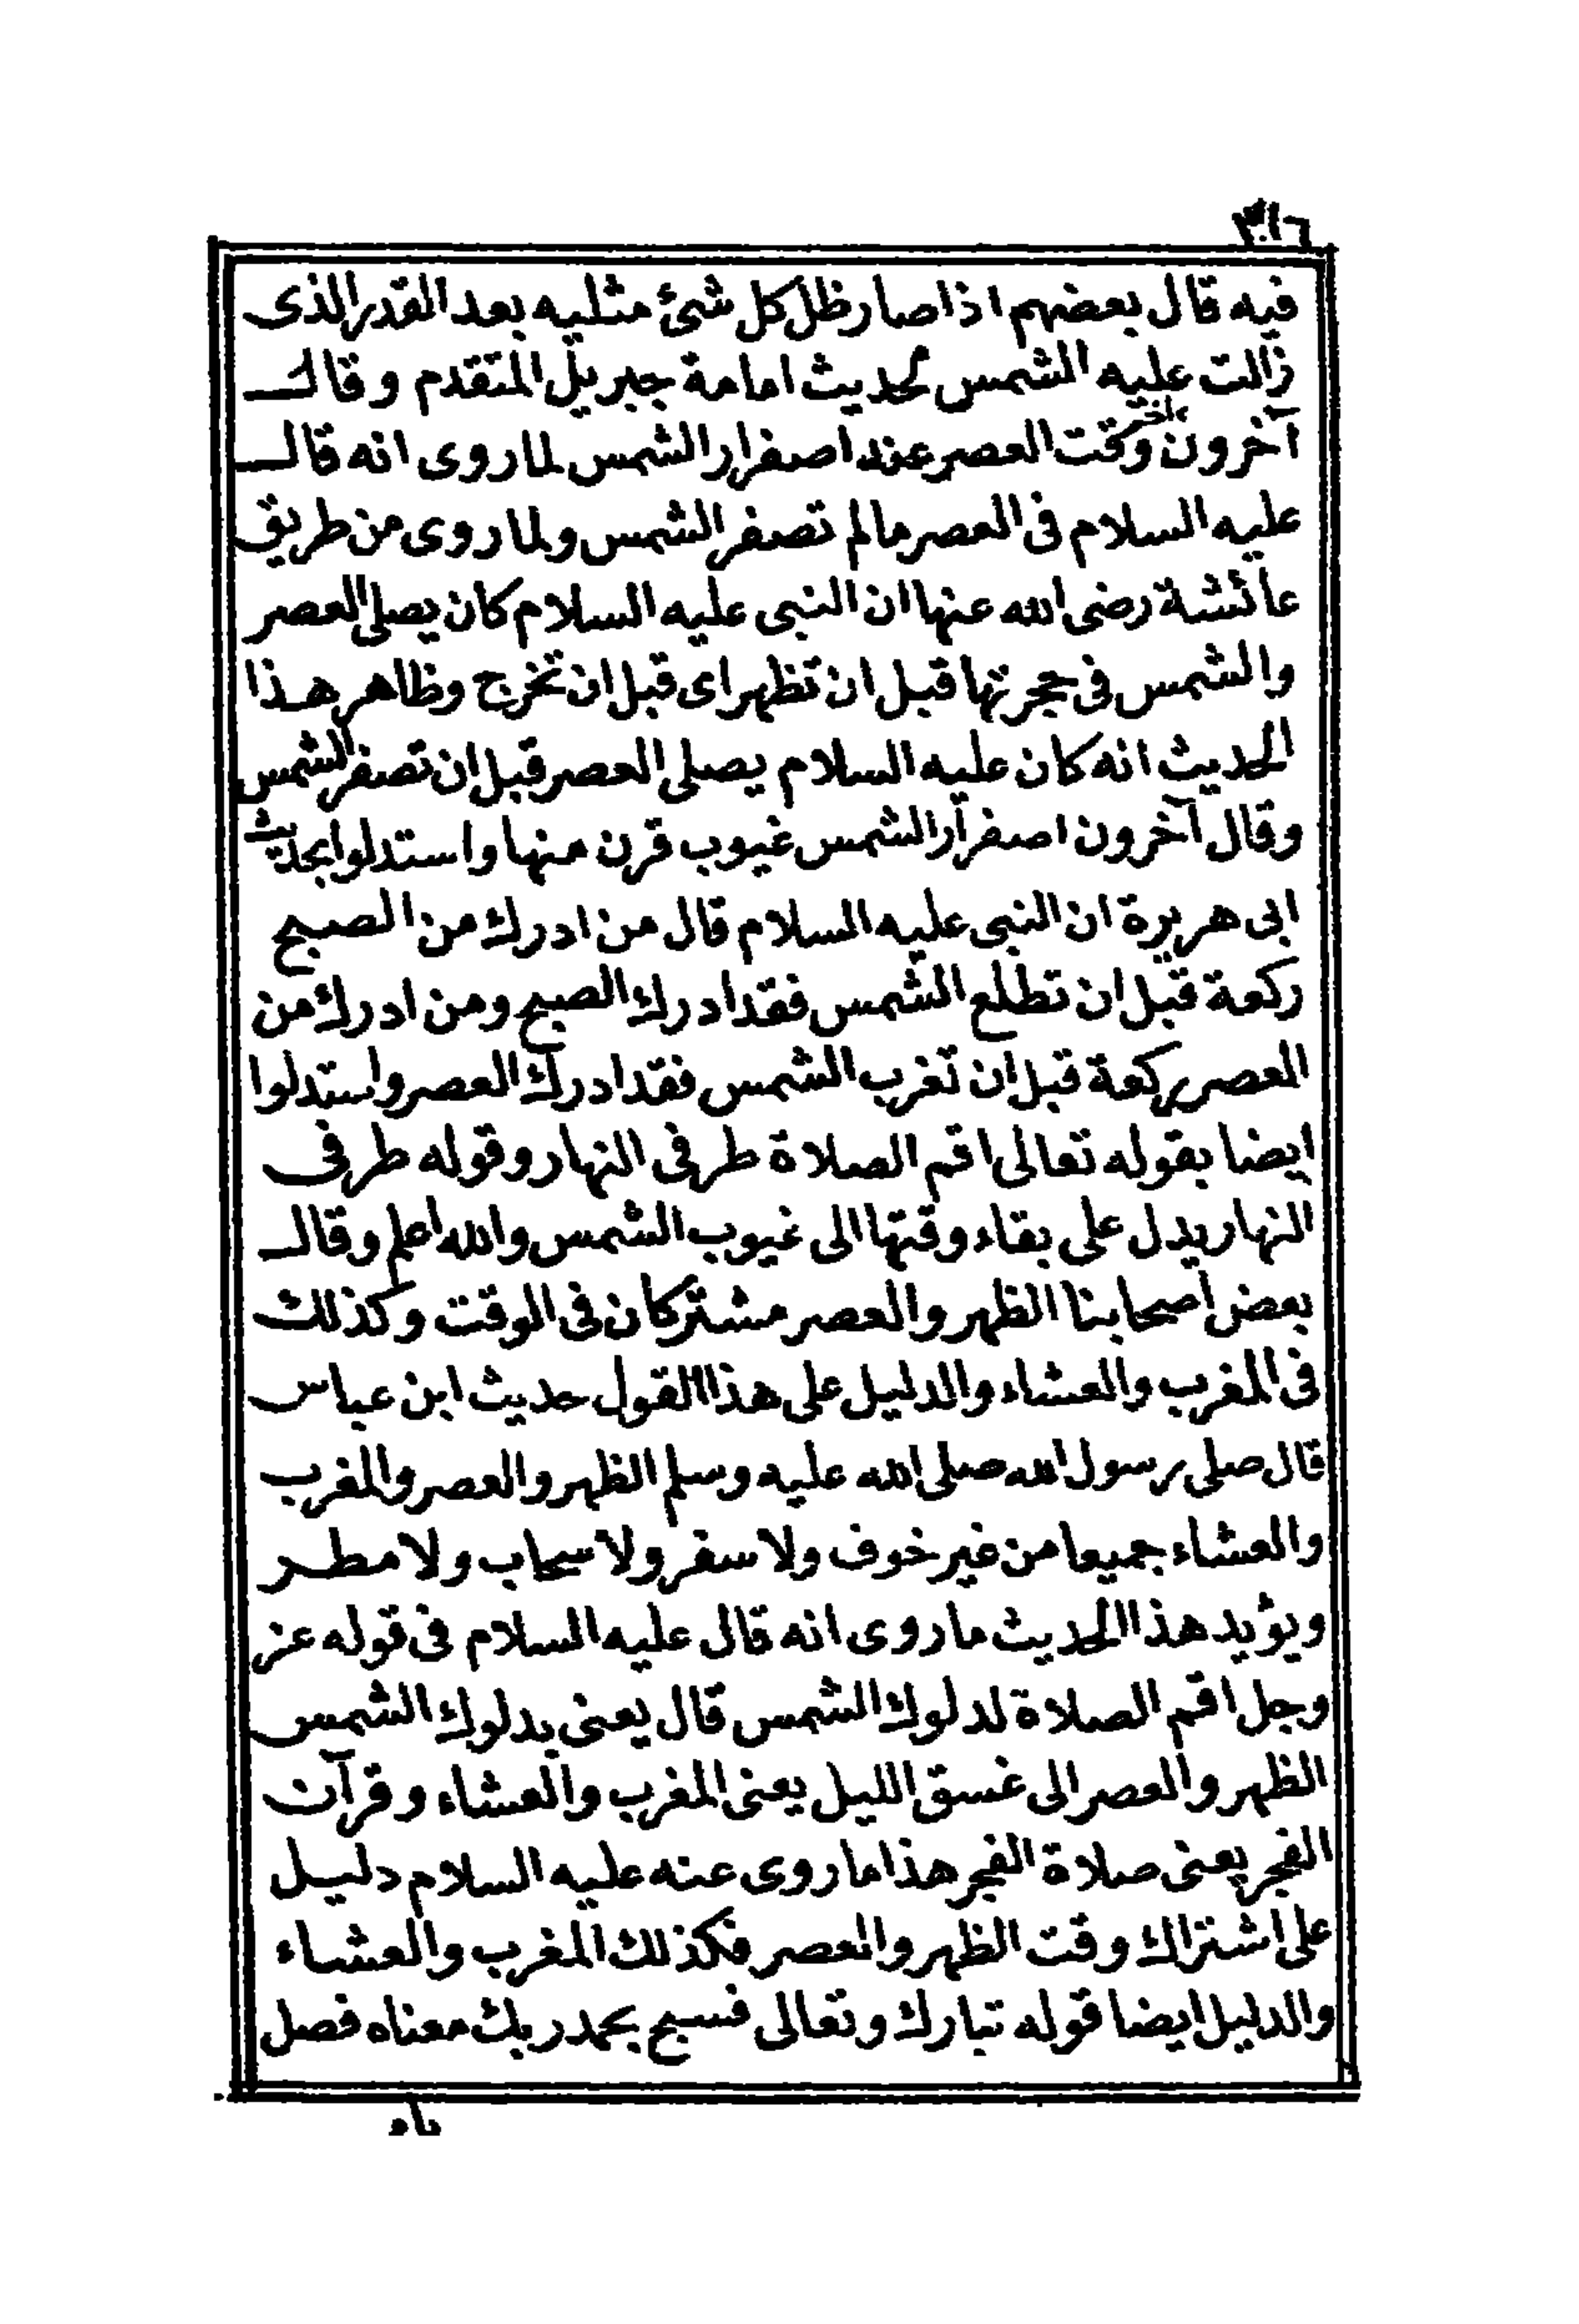 فيه قال بعضهم اذا صار ظل كل شئ مثليه بعد القدر الذى
زالت عليه الشمس لحديث امامة جبريل المتقدم وقال
آخرون آخر وقت العصر عند اصفرار الشمس لما روى انه قال
عليه السلام فى العصر ما لم تصفر الشمس ولما روى من طريق
عائشة رضى الله عنها ان النبى عليه السلام كان يصلى العصر
والشمس فى حجرتها قبل ان تظهر اى قبل ان تخرج وظاهر هذا
الحديث انه كان عليه السلام يصلى العصر قبل ان تصفر الشمس
وقال آخرون اصفرار الشمس غيوب قرن منها واستدلوا بحديث
ابى هريرة ان النبى عليه السلام قال من ادرك من الصبح
ركعة قبل ان تطلع الشمس فقد ادرك الصبح ومن ادرك من
العصر ركعة قبل ان تغرب الشمس فقد ادرك العصر واستدلوا
ايضا بقوله تعالى اقم الصلاة طرفى النهار وقوله طرفى
النهار يدل على بقاء وقتها الى غيوب الشمس والله اعلم وقال
بعض اصحابنا الظهر والعصر مشتركان فى الوقت وكذلك
فى المغرب والعشاء والدليل على هذا القول حديث ابن عباس
قال صلى رسول الله صلى الله عليه وسلم الظهر والعصر والمغرب
والعشاء جميعا من غير خوف ولا سفر ولا سحاب ولا مطر
ويؤيد هذا الحديث ما روى انه قال عليه السلام فى قوله عز
وجل اقم الصلاة لدلوك الشمس قال يعنى بدلوك الشمس
الظهر والعصر الى غسق الليل يعنى المغرب والعشاء وقرآن
الفجر يعنى صلاة الفجر هذا ما روى عنه عليه السلام دليل
على اشتراك وقت الظهر والعصر فكذلك المغرب والعشاء
والدليل ايضا قوله تبارك وتعالى فسبح بحمد ربك معناه فصل